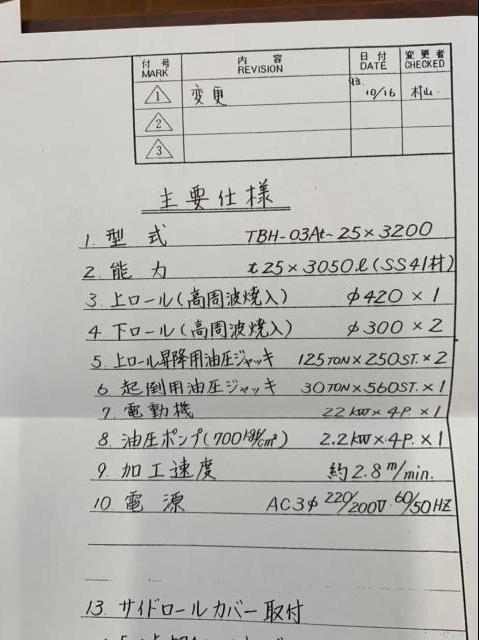 付号 MARK 内容 REVISION 日付 DATE 変更者 CHECKED
1 変更 '93. 10/16 村山
2
3
主要仕様
1. 型式 TBH-03At-25×3200
2. 能力 t25×3050ℓ(SS41材)
3. 上ロール(高周波焼入) φ420×1
4. 下ロール(高周波焼入) φ300×2
5. 上ロール昇降用油圧ジャッキ 125TON×250ST.×2
6. 起倒用油圧ジャッキ 30TON×560ST.×1
7. 電動機 22kW×4P.×1
8. 油圧ポンプ(700kgf/cm²) 2.2kW×4P×1
9. 加工速度 約2.8m/min.
10. 電源 AC3φ 220/200V 60/50HZ
13. サイドロールカバー取付